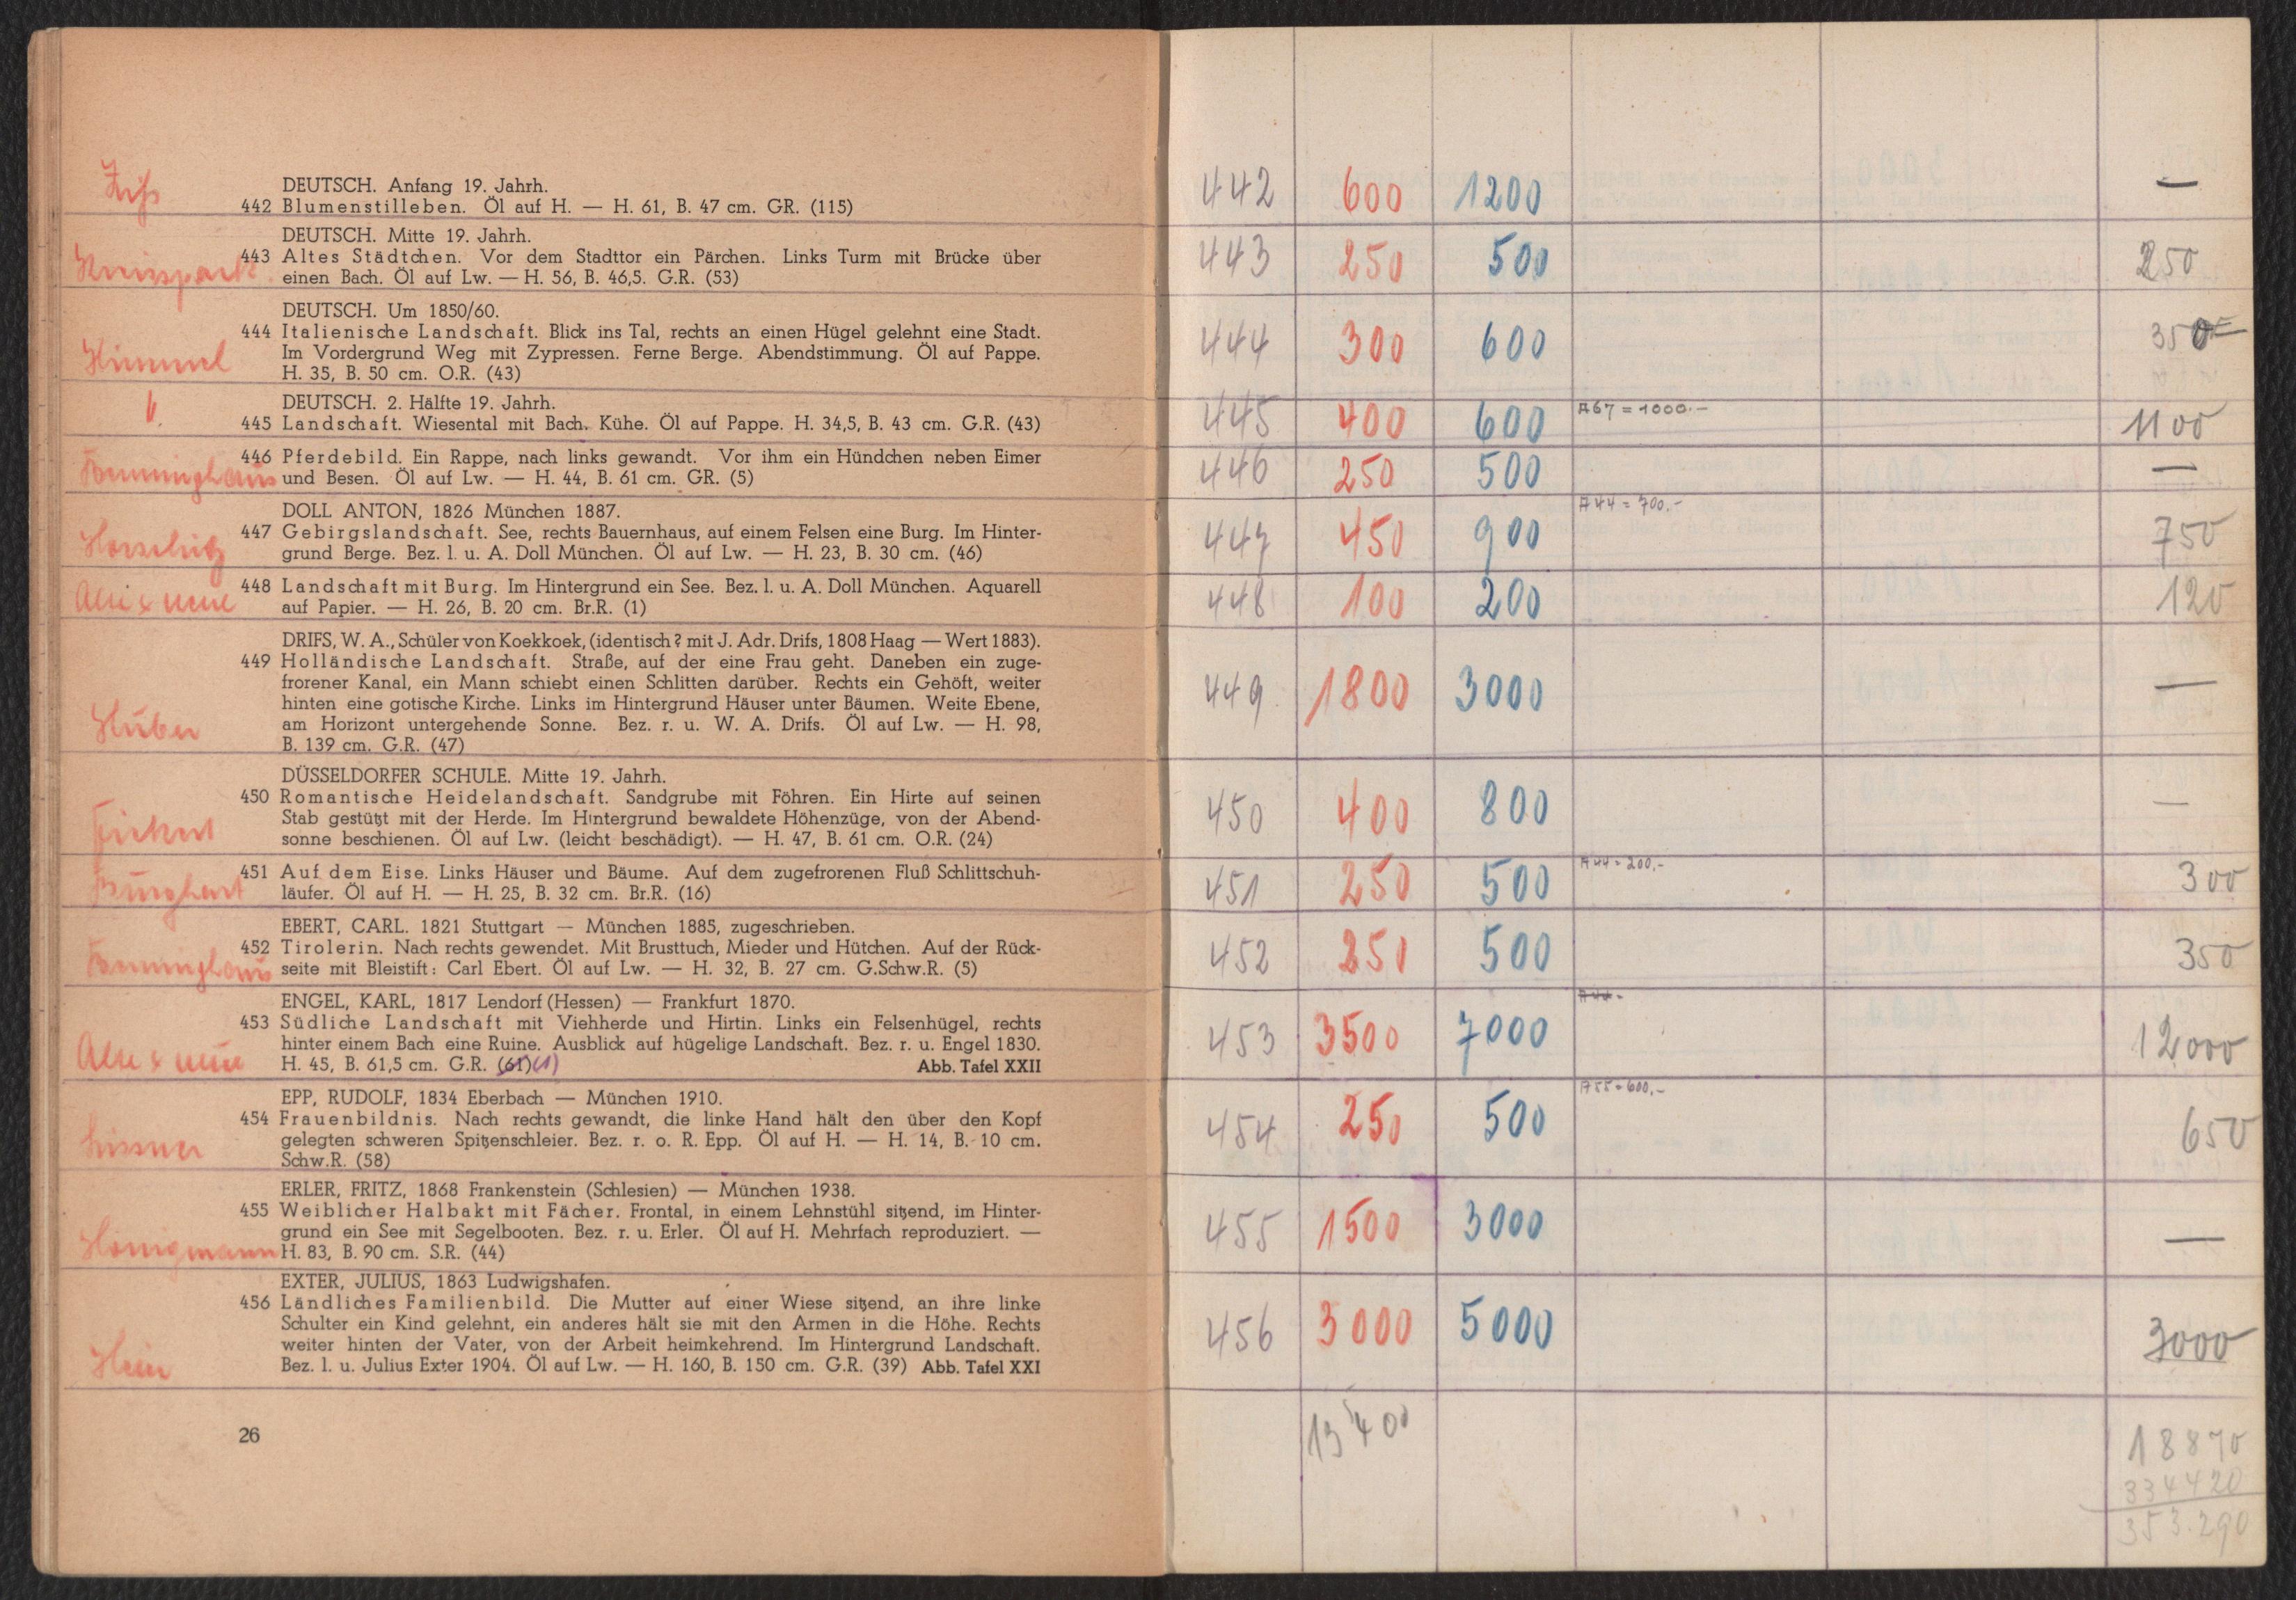 DEUTSCH. Anfang 19. Jahrh.
442 Blumenstilleben. Öl auf H. — H. 61, B. 47 cm. GR. (115)
DEUTSCH. Mitte 19. Jahrh.
443 Altes Städtchen. Vor dem Stadttor ein Pärchen. Links Turm mit Brücke über
einen Bach. Öl auf Lw. — H. 56, B. 46,5. G.R. (53)
DEUTSCH. Um 1850/60.
444 Italienische Landschaft. Blick ins Tal, rechts an einen Hügel gelehnt eine Stadt.
Im Vordergrund Weg mit Zypressen. Ferne Berge. Abendstimmung. Öl auf Pappe.
Himmel H. 35, B. 50 cm. O.R. (43)
DEUTSCH. 2. Hälfte 19. Jahrh.
445 Landschaft. Wiesental mit Bach. Kühe. Öl auf Pappe. H. 34,5, B. 43 cm. G.R. (43)
446 Pferdebild. Ein Rappe, nach links gewandt. Vor ihm ein Hündchen neben Eimer
und Besen. Öl auf Lw. — H. 44, B. 61 cm. GR. (5)
DOLL ANTON, 1826 München 1887.
447 Gebirgslandschaft. See, rechts Bauernhaus, auf einem Felsen eine Burg. Im Hinter-
Horschitz grund Berge. Bez. l. u. A. Doll München. Öl auf Lw. — H. 23, B. 30 cm. (46)
448 Landschaft mit Burg. Im Hintergrund ein See. Bez. l. u. A. Doll München. Aquarell
Alte & neue auf Papier. — H. 26, B. 20 cm. Br.R. (1)
DRIFS, W. A., Schüler von Koekkoek, (identisch? mit J. Adr. Drifs, 1808 Haag — Wert 1883).
449 Holländische Landschaft. Straße, auf der eine Frau geht. Daneben ein zuge-
frorener Kanal, ein Mann schiebt einen Schlitten darüber. Rechts ein Gehöft, weiter
hinten eine gotische Kirche. Links im Hintergrund Häuser unter Bäumen. Weite Ebene,
Huber am Horizont untergehende Sonne. Bez. r. u. W. A. Drifs. Öl auf Lw. — H. 98,
B. 139 cm. G.R. (47)
DÜSSELDORFER SCHULE. Mitte 19. Jahrh.
450 Romantische Heidelandschaft. Sandgrube mit Föhren. Ein Hirte auf seinen
Stab gestützt mit der Herde. Im Hintergrund bewaldete Höhenzüge, von der Abend-
sonne beschienen. Öl auf Lw. (leicht beschädigt). — H. 47, B. 61 cm. O.R. (24)
451 Auf dem Eise. Links Häuser und Bäume. Auf dem zugefrorenen Fluß Schlittschuh-
Burghart läufer. Öl auf H. — H. 25, B. 32 cm. Br.R. (16)
EBERT, CARL. 1821 Stuttgart — München 1885, zugeschrieben.
452 Tirolerin. Nach rechts gewendet. Mit Brusttuch, Mieder und Hütchen. Auf der Rück-
seite mit Bleistift: Carl Ebert. Öl auf Lw. — H. 32, B. 27 cm. G.Schw.R. (5)
ENGEL, KARL, 1817 Lendorf (Hessen) — Frankfurt 1870.
453 Südliche Landschaft mit Viehherde und Hirtin. Links ein Felsenhügel, rechts
hinter einem Bach eine Ruine. Ausblick auf hügelige Landschaft. Bez. r. u. Engel 1830.
Alte & neue H. 45, B. 61,5 cm. G.R. (61) (1) Abb. Tafel XXII
EPP, RUDOLF, 1834 Eberbach — München 1910.
454 Frauenbildnis. Nach rechts gewandt, die linke Hand hält den über den Kopf
Lissner gelegten schweren Spitzenschleier. Bez. r. o. R. Epp. Öl auf H. — H. 14, B. 10 cm.
Schw.R. (58)
ERLER, FRITZ, 1868 Frankenstein (Schlesien) — München 1938.
455 Weiblicher Halbakt mit Fächer. Frontal, in einem Lehnstühl sitzend, im Hinter-
grund ein See mit Segelbooten. Bez. r. u. Erler. Öl auf H. Mehrfach reproduziert. —
Hönigmann H. 83, B. 90 cm. S.R. (44)
EXTER, JULIUS, 1863 Ludwigshafen.
456 Ländliches Familienbild. Die Mutter auf einer Wiese sitzend, an ihre linke
Schulter ein Kind gelehnt, ein anderes hält sie mit den Armen in die Höhe. Rechts
weiter hinten der Vater, von der Arbeit heimkehrend. Im Hintergrund Landschaft.
Hein Bez. l. u. Julius Exter 1904. Öl auf Lw. — H. 160, B. 150 cm. G.R. (39) Abb. Tafel XXI
26
442 600 1200 —
443 250 500 250
444 300 600 350
445 400 600 A67 = 1000.— 1100
446 250 500 —
447 450 900 A44 = 700.- 750
448 100 200 120
449 1800 3000 —
450 400 800 —
451 250 500 A44 = 200,- 300
452 250 500 350
453 3500 7000 A44 - 12000
454 250 500 A55 = 600,- 650
455 1500 3000 —
456 3000 5000 3000
13400 18870
334420
353.290